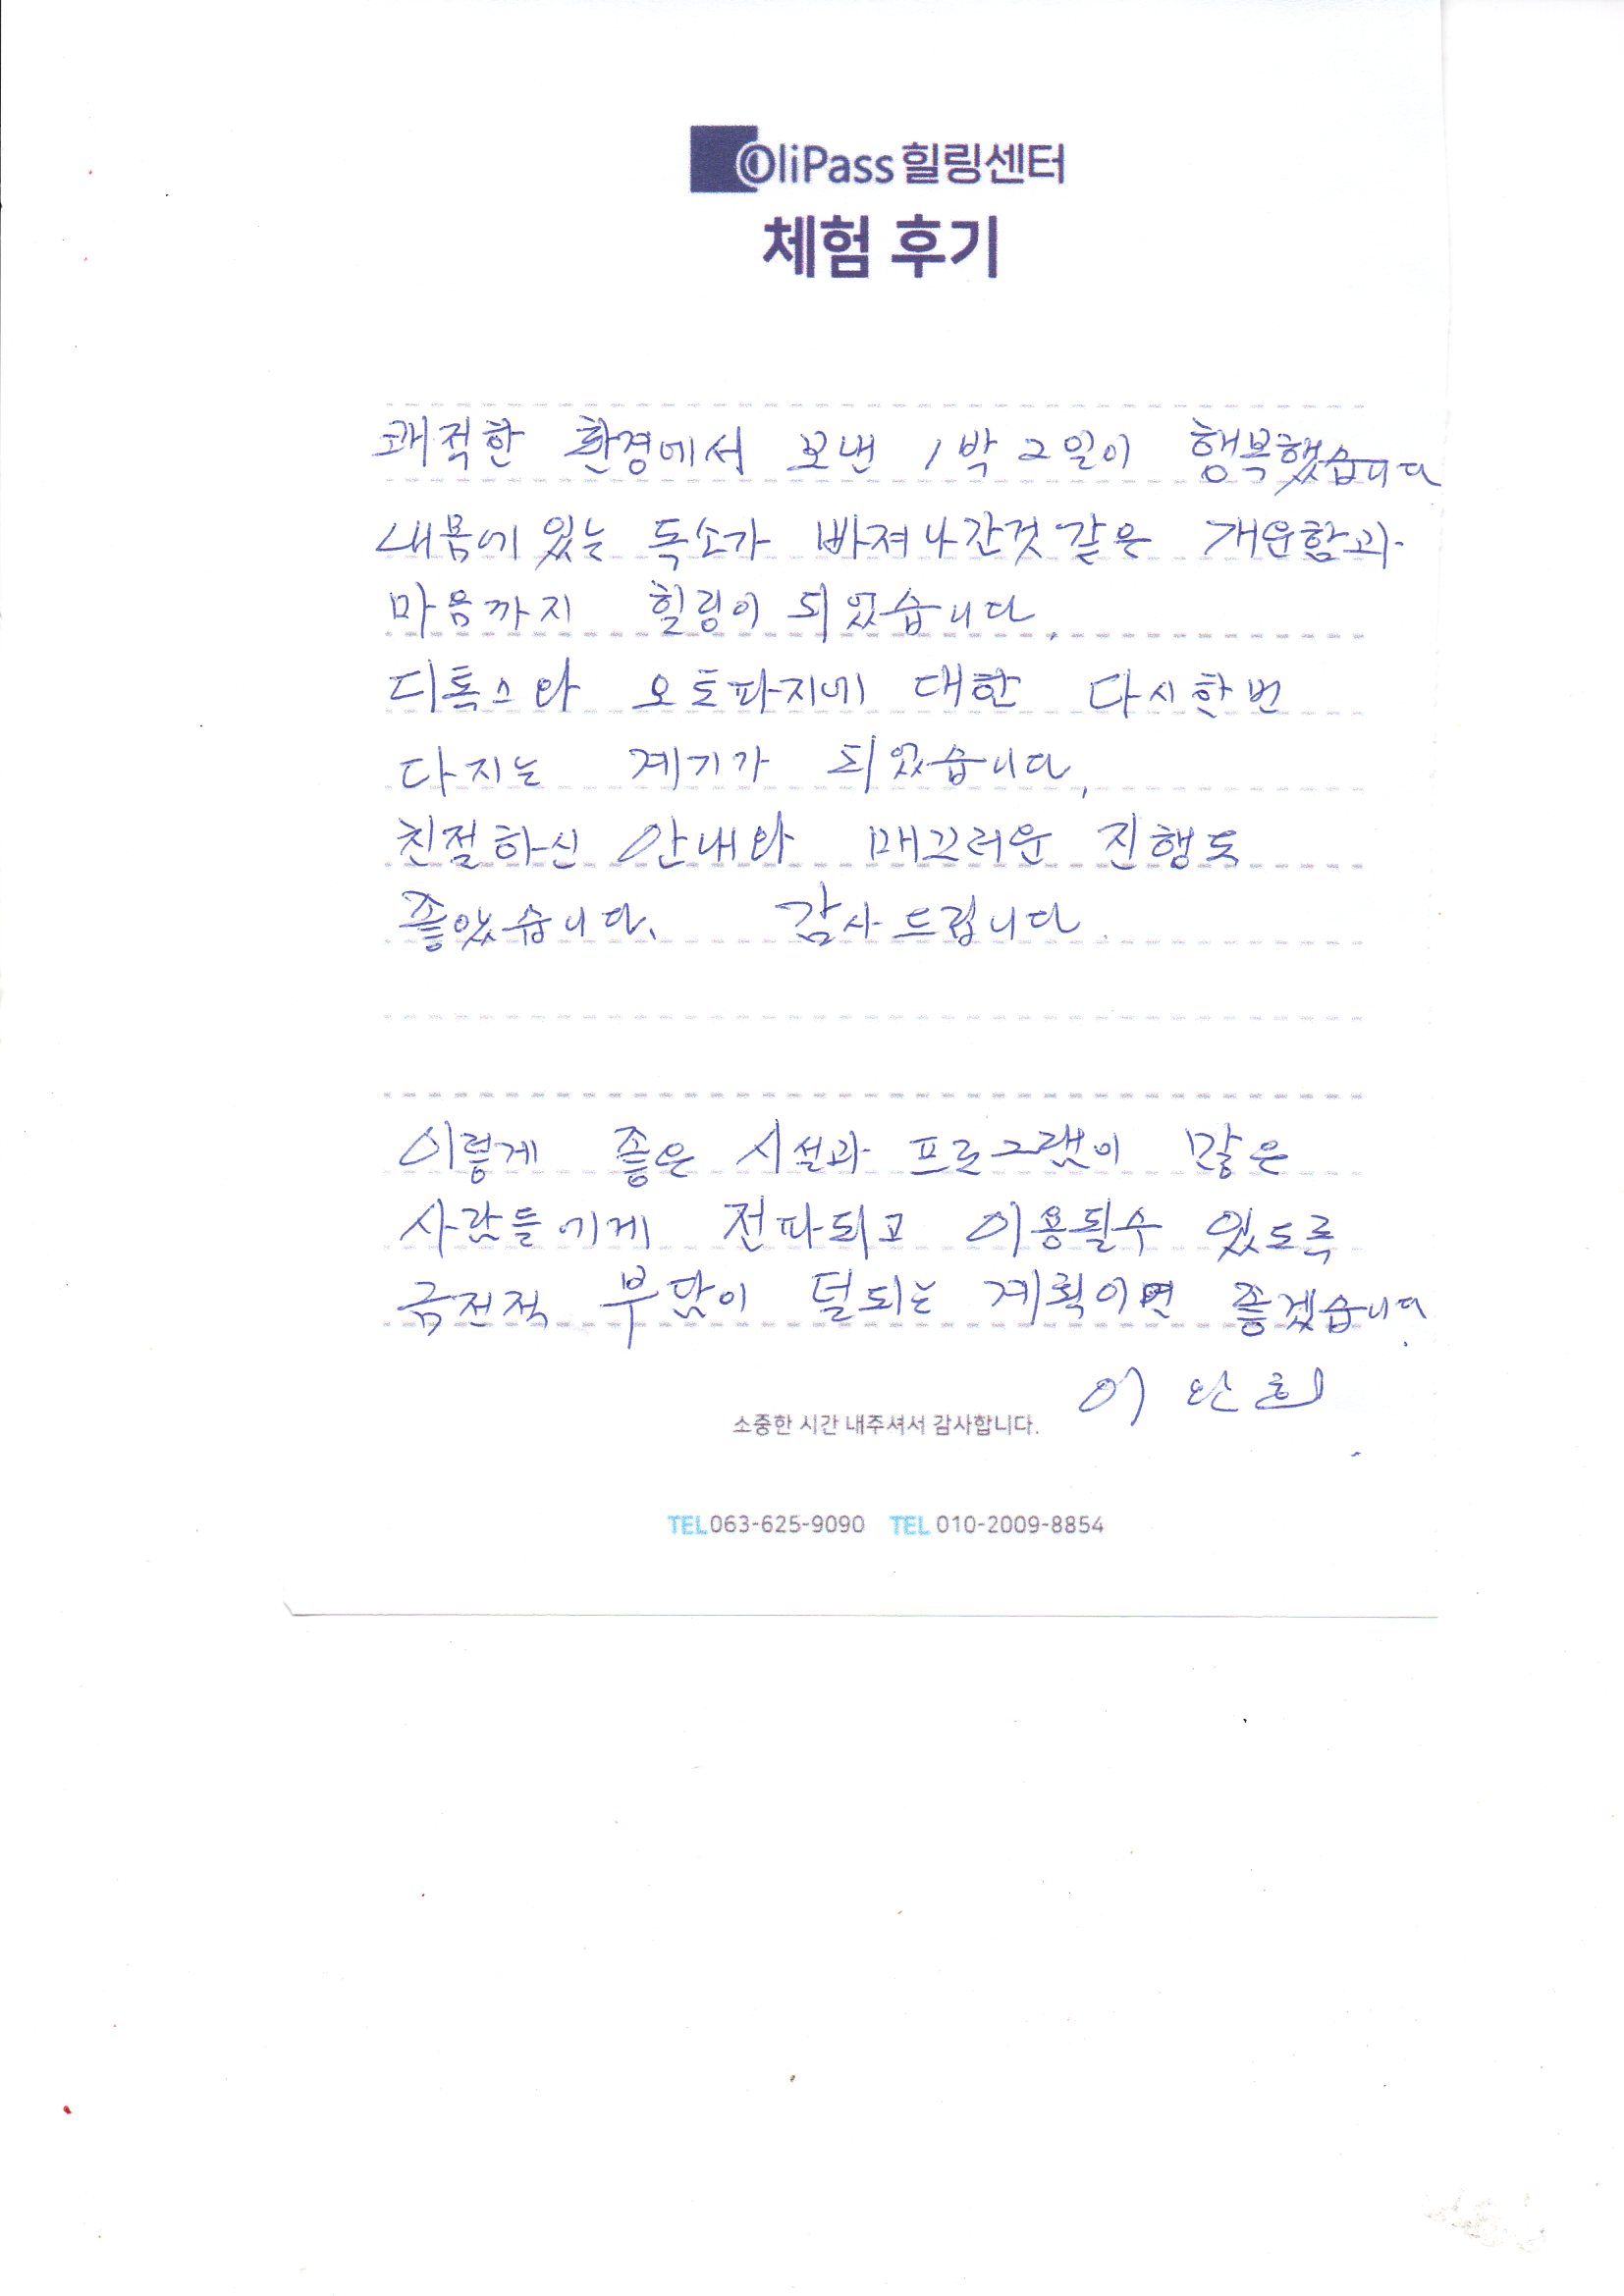 OliPass 힐링센터
체험 후기
쾌적한 환경에서 보낸 1박 2일이 행복했습니다
내몸에 있는 독소가 빠져나간것 같은 개운함과
마음까지 힐링이 되었습니다.
디톡스와 오토파지에 대한 다시한번
다지는 계기가 되었습니다.
친절하신 안내와 매끄러운 진행도
좋았습니다. 감사드립니다.
이렇게 좋은 시설과 프로그램이 많은
사람들에게 전파되고 이용될수 있도록
금전적 부담이 덜되는 계획이면 좋겠습니다.
소중한 시간 내주셔서 감사합니다.
TEL 063-625-9090 TEL 010-2009-8854